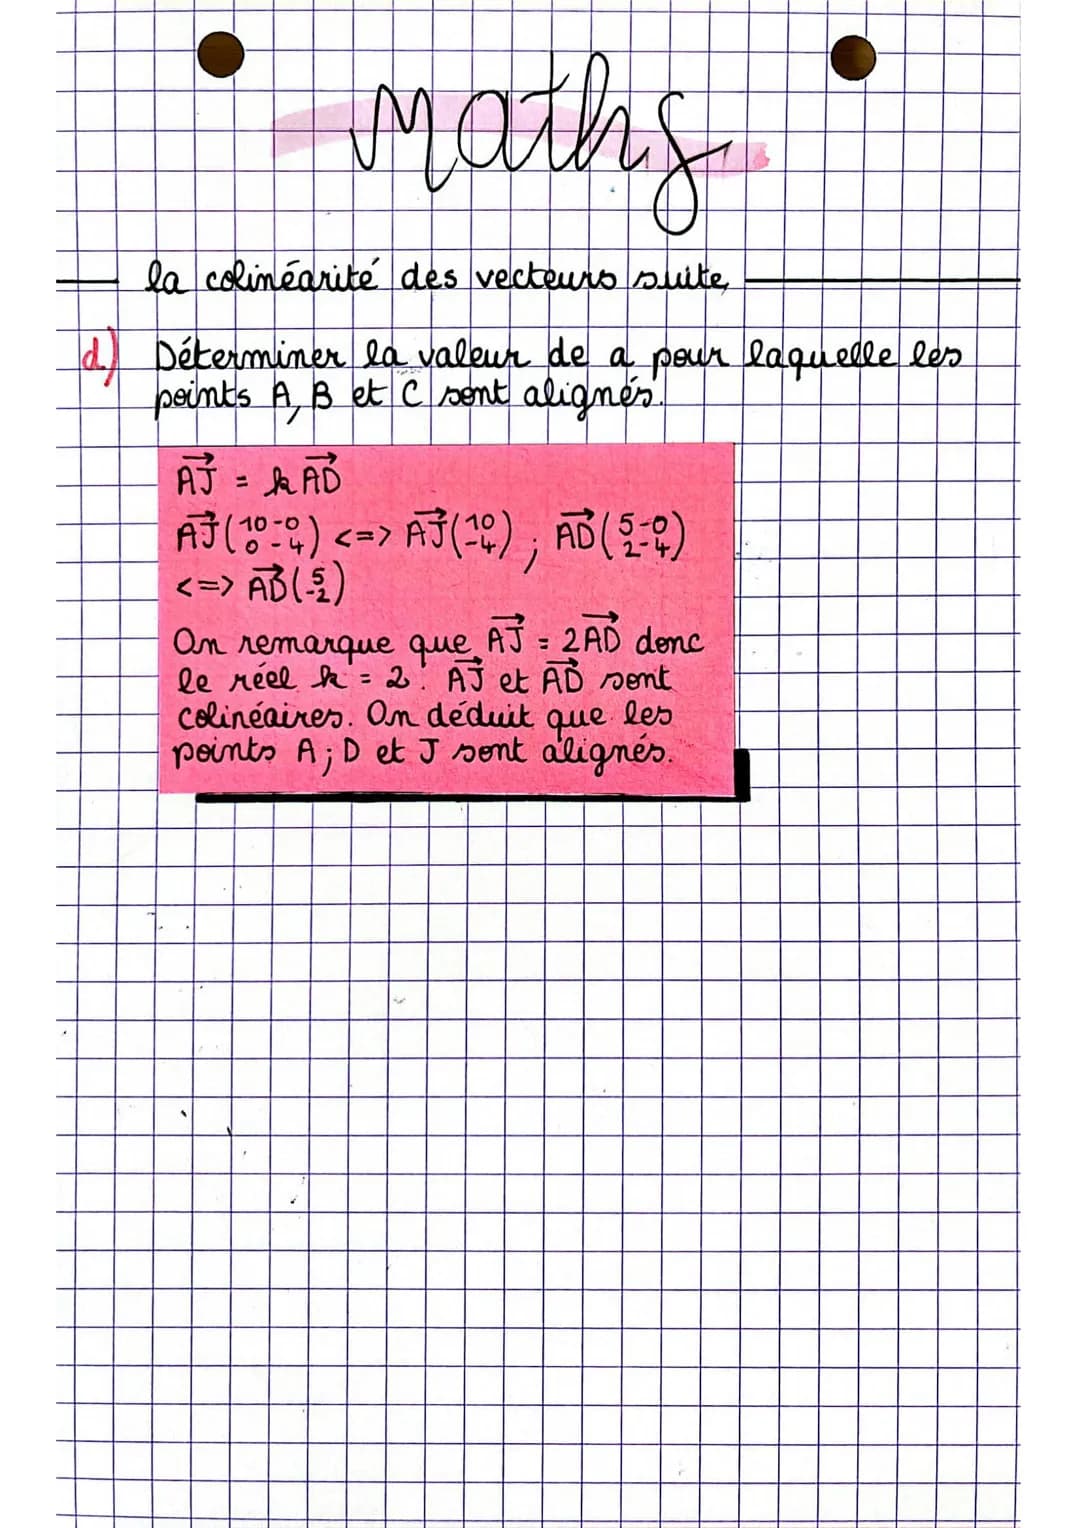 Maths
la colinéarité des vecteurs suite
d.) Déterminer la valeur de a pour laquelle les
points A, B et C sont alignés.
\vec{AJ} = k\vec{AD}
\vec{AJ}\begin{pmatrix}10-0\\0-4\end{pmatrix} <=> \vec{AJ}\begin{pmatrix}10\\-4\end{pmatrix} ; \vec{AD}\begin{pmatrix}5-0\\2-4\end{pmatrix}
<=> \vec{AD}\begin{pmatrix}5\\-2\end{pmatrix}
On remarque que \vec{AJ} = 2\vec{AD} donc
le réel k = 2. \vec{AJ} et \vec{AD} sont
colinéaires. On déduit que les
points A ; D et J sont alignés.